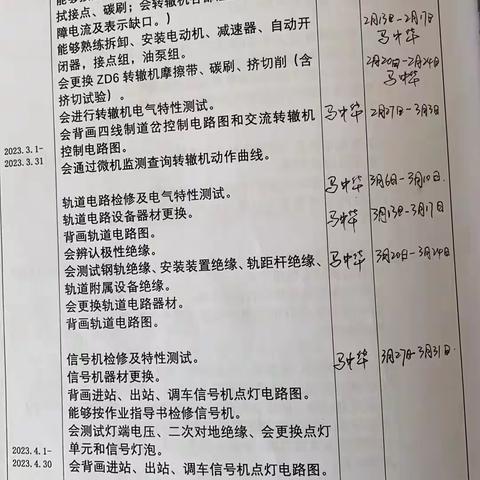 拭接点、碳刷；会转辙机各部
障电流及表示缺口。）
能够熟练拆卸、安装电动机、减速器、自动开
闭器，接点组，油泵组。
会更换 ZD6 转辙机摩擦带、碳刷、挤切削（含
挤切试验）。
会进行转辙机电气特性测试。
会背画四线制道岔控制电路图和交流转辙机
控制电路图。
会通过微机监测查询转辙机动作曲线。
轨道电路检修及电气特性测试。
轨道电路设备器材更换。
背画轨道电路图。
会辨认极性绝缘。
会测试钢轨绝缘、安装装置绝缘、轨距杆绝缘、
轨道附属设备绝缘。
会更换轨道电路器材。
背画轨道电路图。
信号机检修及特性测试。
信号机器材更换。
背画进站、出站、调车信号机点灯电路图。
能够按作业指导书检修信号机。
会测试灯端电压、二次对地绝缘、会更换点灯
单元和信号灯泡。
会背画进站、出站、调车信号机点灯电路图。
2023.3.1-
2023.3.31
2023.4.1-
2023.4.30
2月13日-2月17日
马中华
2月20日-2月24日
马中华
马中华 2月27日-3月3日
马中华 3月6日-3月10日
马中华 3月13日-3月17日
马中华 3月20日-3月24日
马中华 3月27日-3月31日.